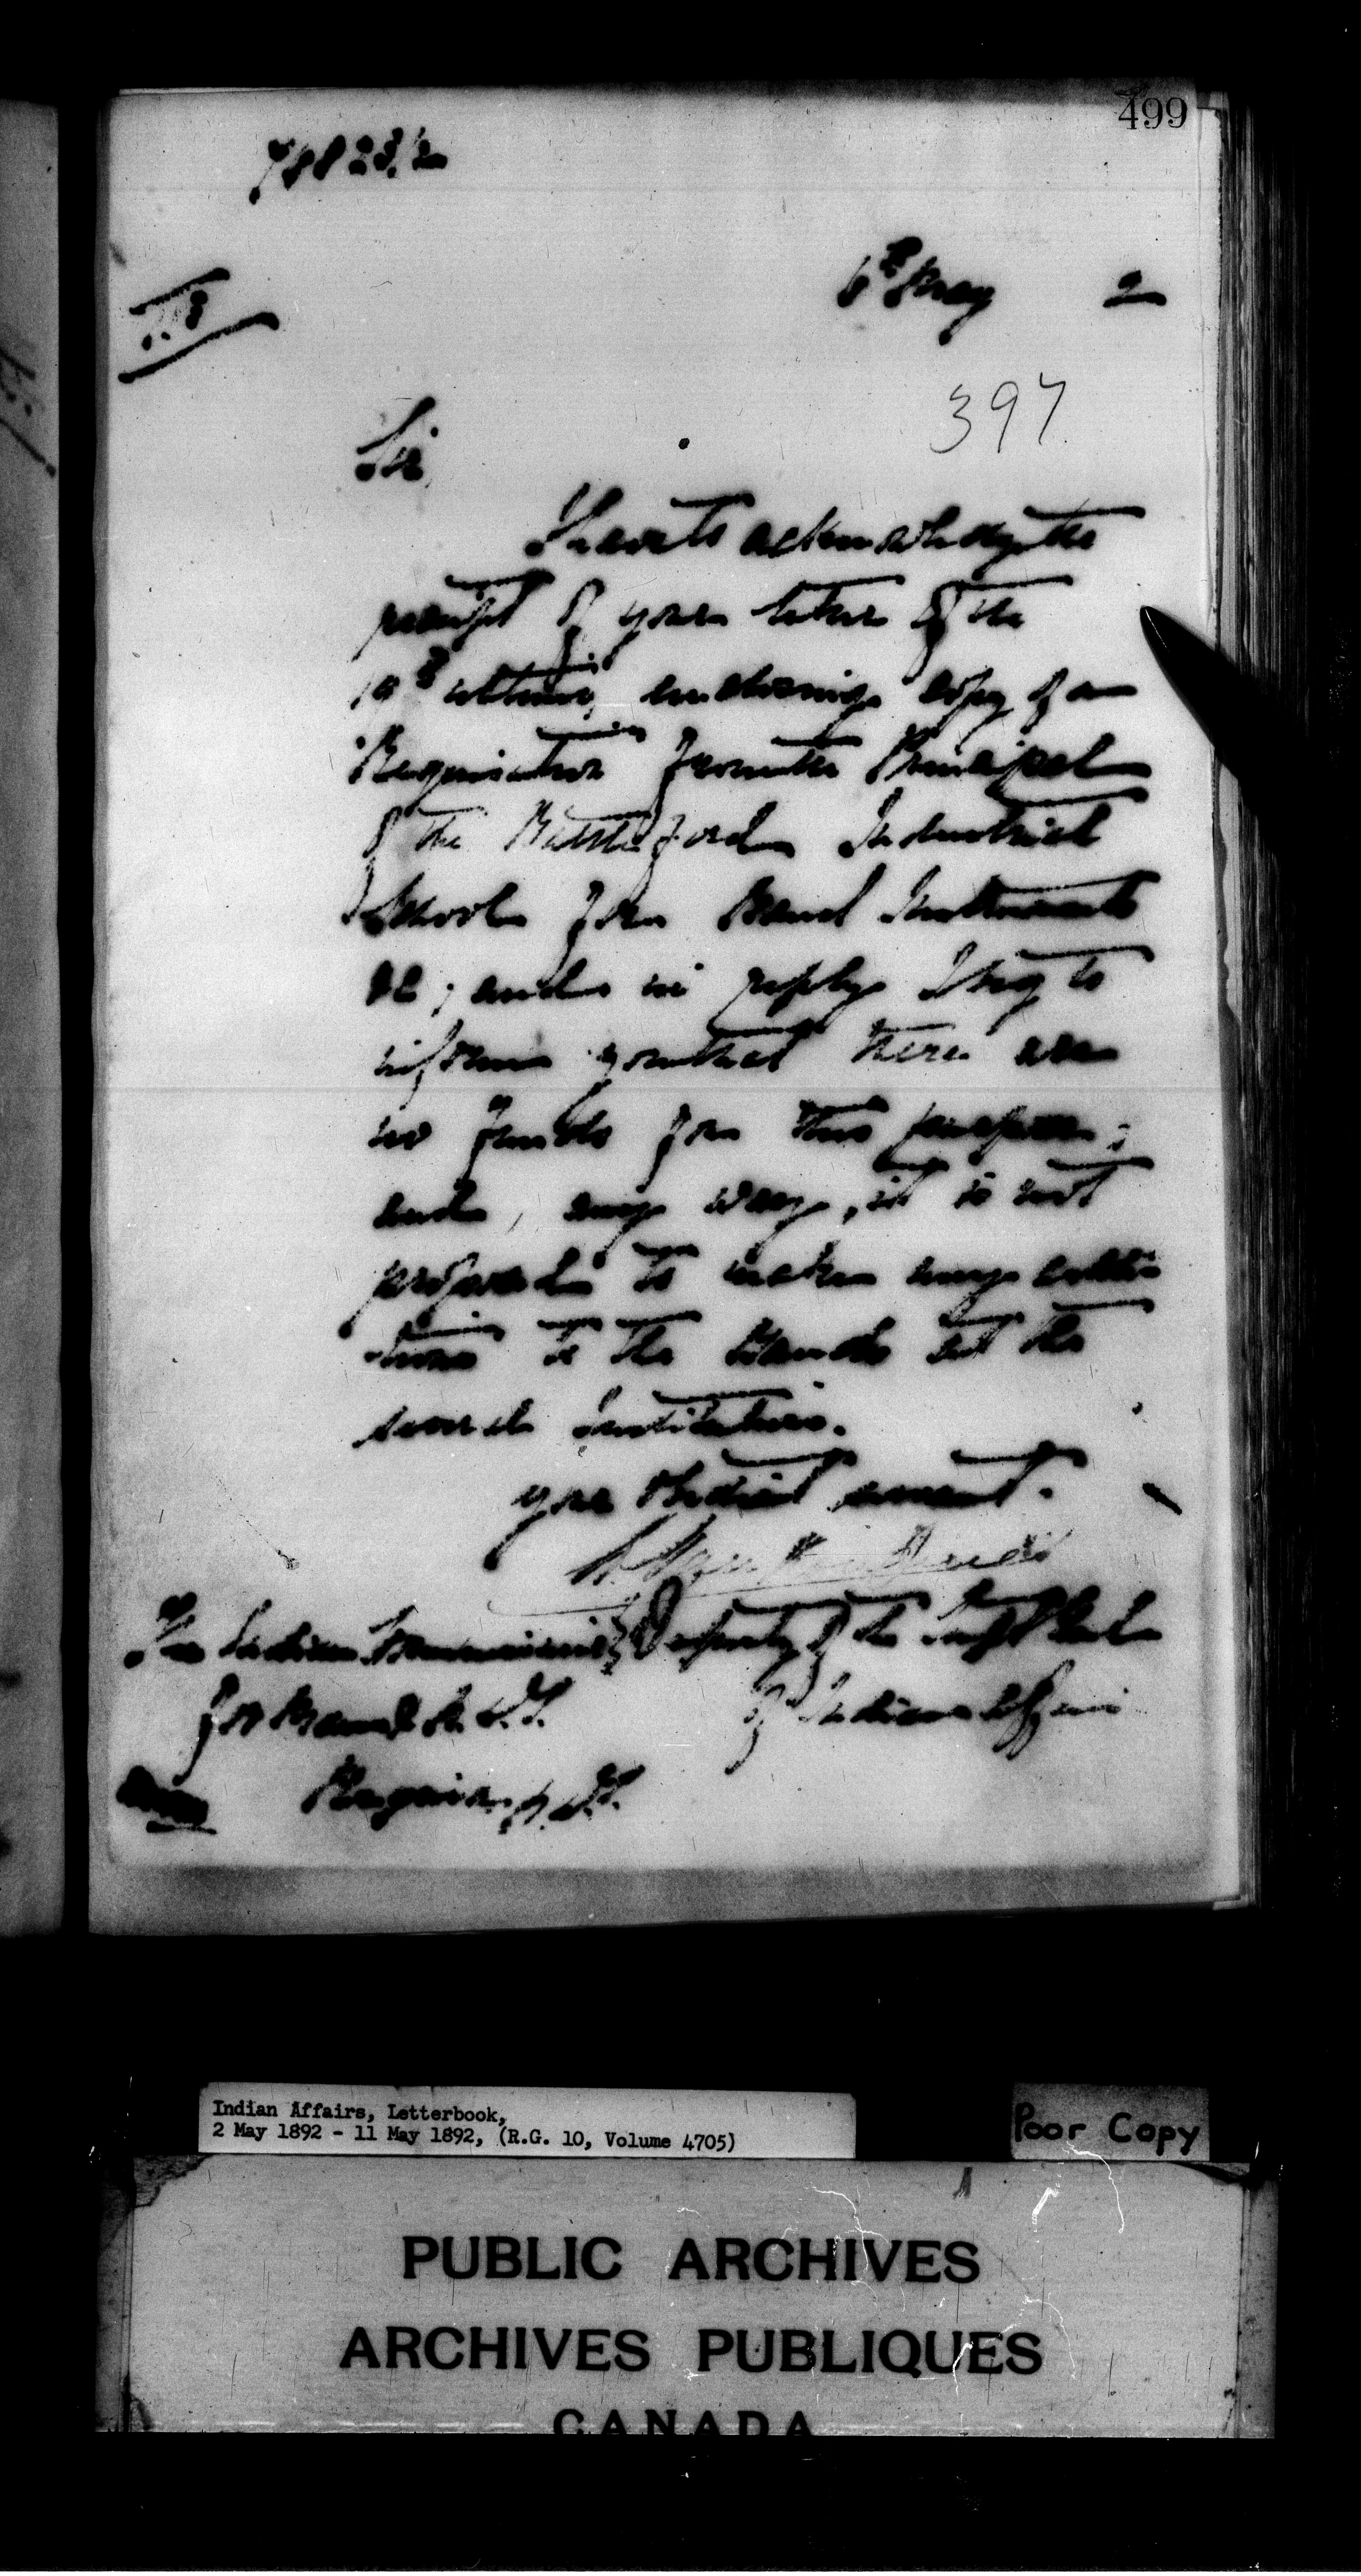 499
78823/2
6th May 2
397
Sir,
I have to acknowledge the
receipt of your letter of the
19th ultimo, enclosing copy of a
Requisition from the Principal
of the Battleford Industrial
School for Band Instruments
&c; and in reply I beg to
inform you that there are
no funds for this purpose;
and, any way, it is not
proposed to make any addi
tions to the Bands at the
several Institutions.
Your Obedient servant.
L. Vankoughnet
The Indian Commissioner Deputy of the Supt Genl
for Man & N.W.T. of Indian Affairs
Regina. N.W.T.
Indian Affairs, Letterbook,
2 May 1892 - 11 May 1892, (R.G. 10, Volume 4705)
Poor Copy
PUBLIC ARCHIVES
ARCHIVES PUBLIQUES
CANADA